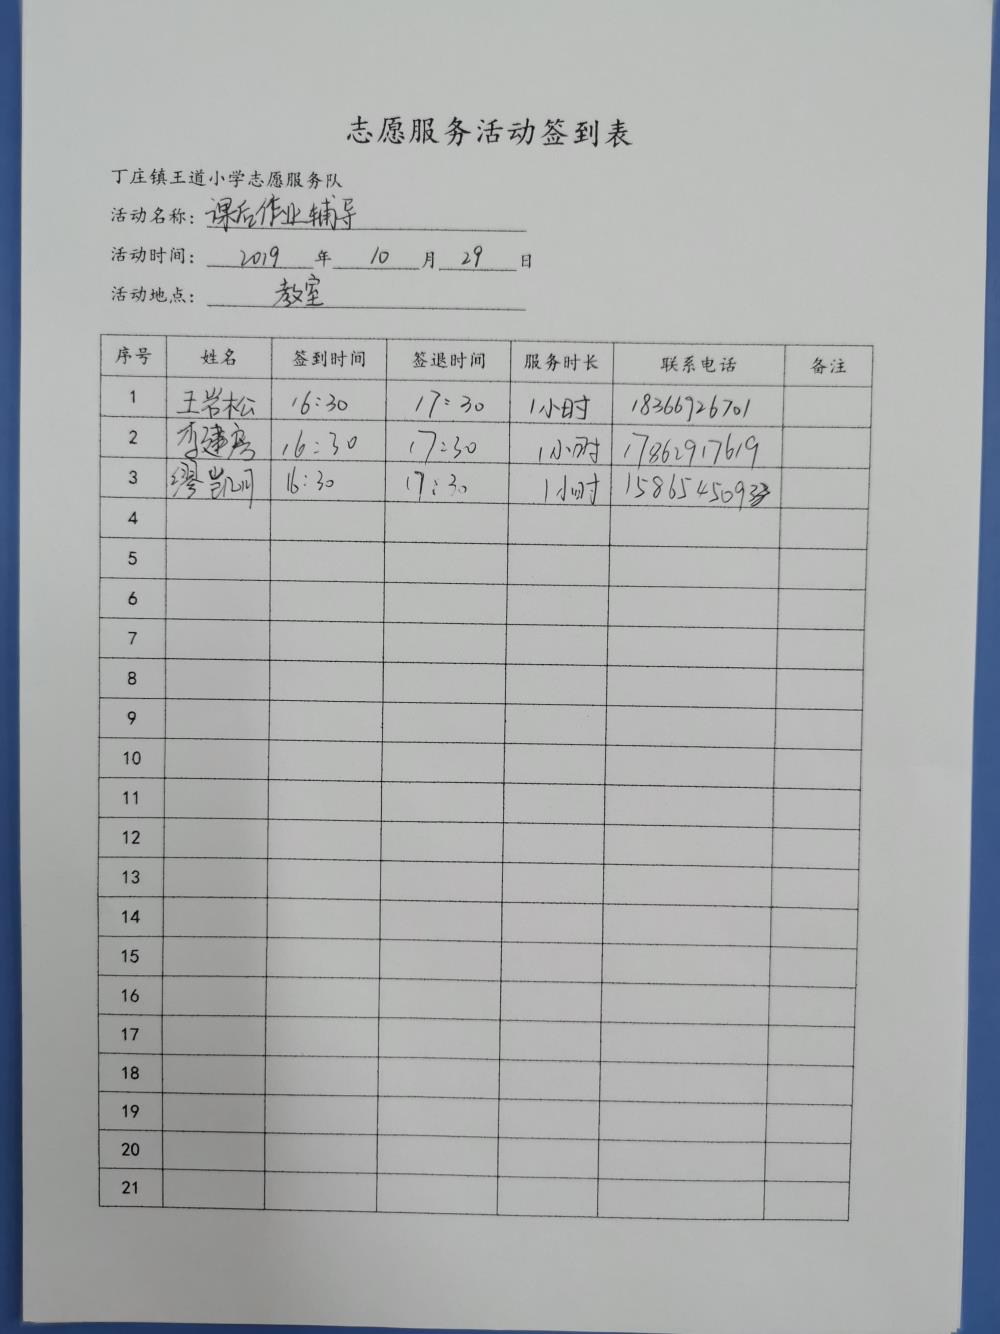 志愿服务活动签到表
丁庄镇王道小学志愿服务队
活动名称：课后作业辅导
活动时间：2019年10月29日
活动地点：教室
序号 姓名 签到时间 签退时间 服务时长 联系电话 备注
1 王岩松 16:30 17:30 1小时 18366926701
2 李建房 16:30 17:30 1小时 17862917619
3 缪凯明 16:30 17:30 1小时
4
5
6
7
8
9
10
11
12
13
14
15
16
17
18
19
20
21